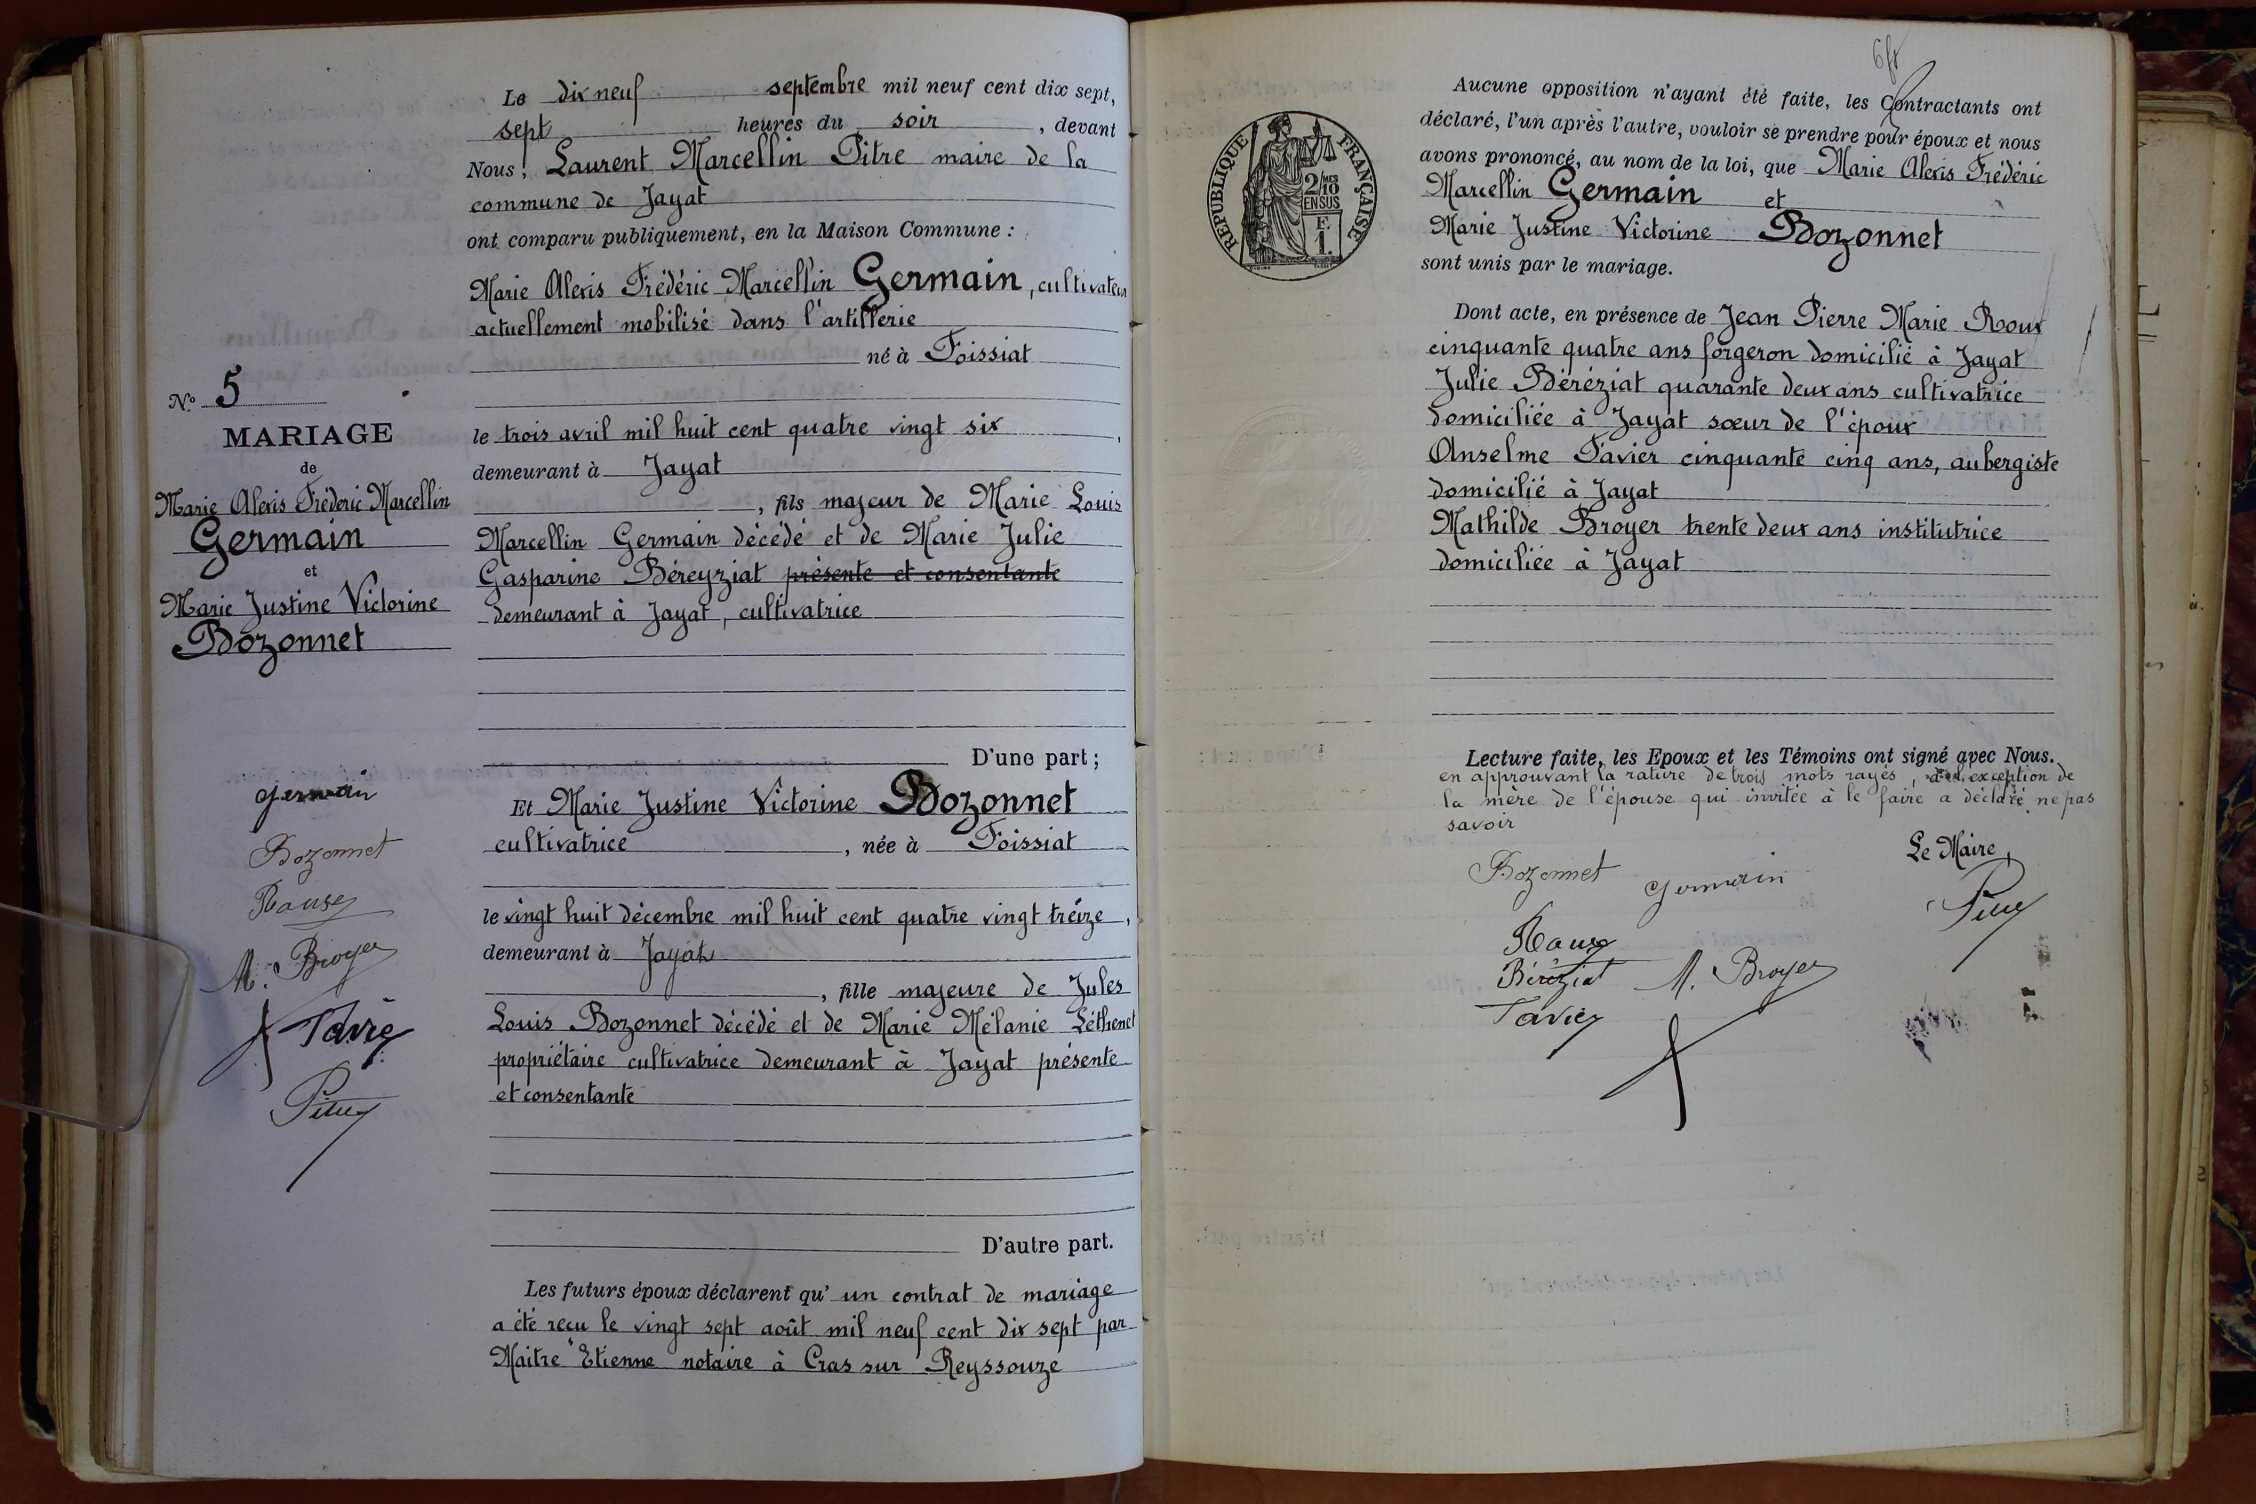 N.º 5
MARIAGE
de
Marie Alexis Fréderic Marcellin
Germain
et
Marie Justine Victorine
Bozonnet
Germain
Bozonnet
M. Broyer
Favier
Pitre
Le dix neuf septembre mil neuf cent dix sept,
sept heures du soir , devant
Nous, Laurent Marcellin Pitre maire de la
commune de Jayat
ont comparu publiquement, en la Maison Commune :
Marie Alexis Frédéric Marcellin Germain, cultivateur
actuellement mobilisé dans l'artillerie
né à Foissiat
le trois avril mil huit cent quatre vingt six ,
demeurant à Jayat
, fils majeur de Marie Louis
Marcellin Germain décédé et de Marie Julie
Gasparine Béreyziat présente et consentante
demeurant à Jayat, cultivatrice
D'une part ;
Et Marie Justine Victorine Bozonnet
cultivatrice , née à Foissiat
le vingt huit décembre mil huit cent quatre vingt treize ,
demeurant à Jayat
, fille majeure de Jules
Louis Bozonnet décédé et de Marie Mélanie Léthenet
propriétaire cultivatrice demeurant à Jayat présente
et consentante
D'autre part.
Les futurs époux déclarent qu' un contrat de mariage
a été reçu le vingt sept août mil neuf cent dix sept par
Maitre Etienne notaire à Cras sur Reyssouze
RÉPUBLIQUE FRANÇAISE
2/10 MES
EN SUS
F.
1.
Aucune opposition n'ayant été faite, les Contractants ont
déclaré, l'un après l'autre, vouloir se prendre pour époux et nous
avons prononcé, au nom de la loi, que Marie Alexis Frédéric
Marcellin Germain et
Marie Justine Victorine Bozonnet
sont unis par le mariage.
Dont acte, en présence de Jean Pierre Marie Roux
cinquante quatre ans forgeron domicilié à Jayat
Julie Béréziat quarante deux ans cultivatrice
domiciliée à Jayat sœur de l'époux
Anselme Favier cinquante cinq ans, aubergiste
domicilié à Jayat
Mathilde Broyer trente deux ans institutrice
domiciliée à Jayat
Lecture faite, les Epoux et les Témoins ont signé avec Nous.
en approuvant la rature de trois mots rayés, à l'exception de
la mère de l'épouse qui invitée à le faire a déclaré ne pas
savoir
Le Maire,
Bozonnet Germain
Pitre
Béréziat M. Broyer
Favier